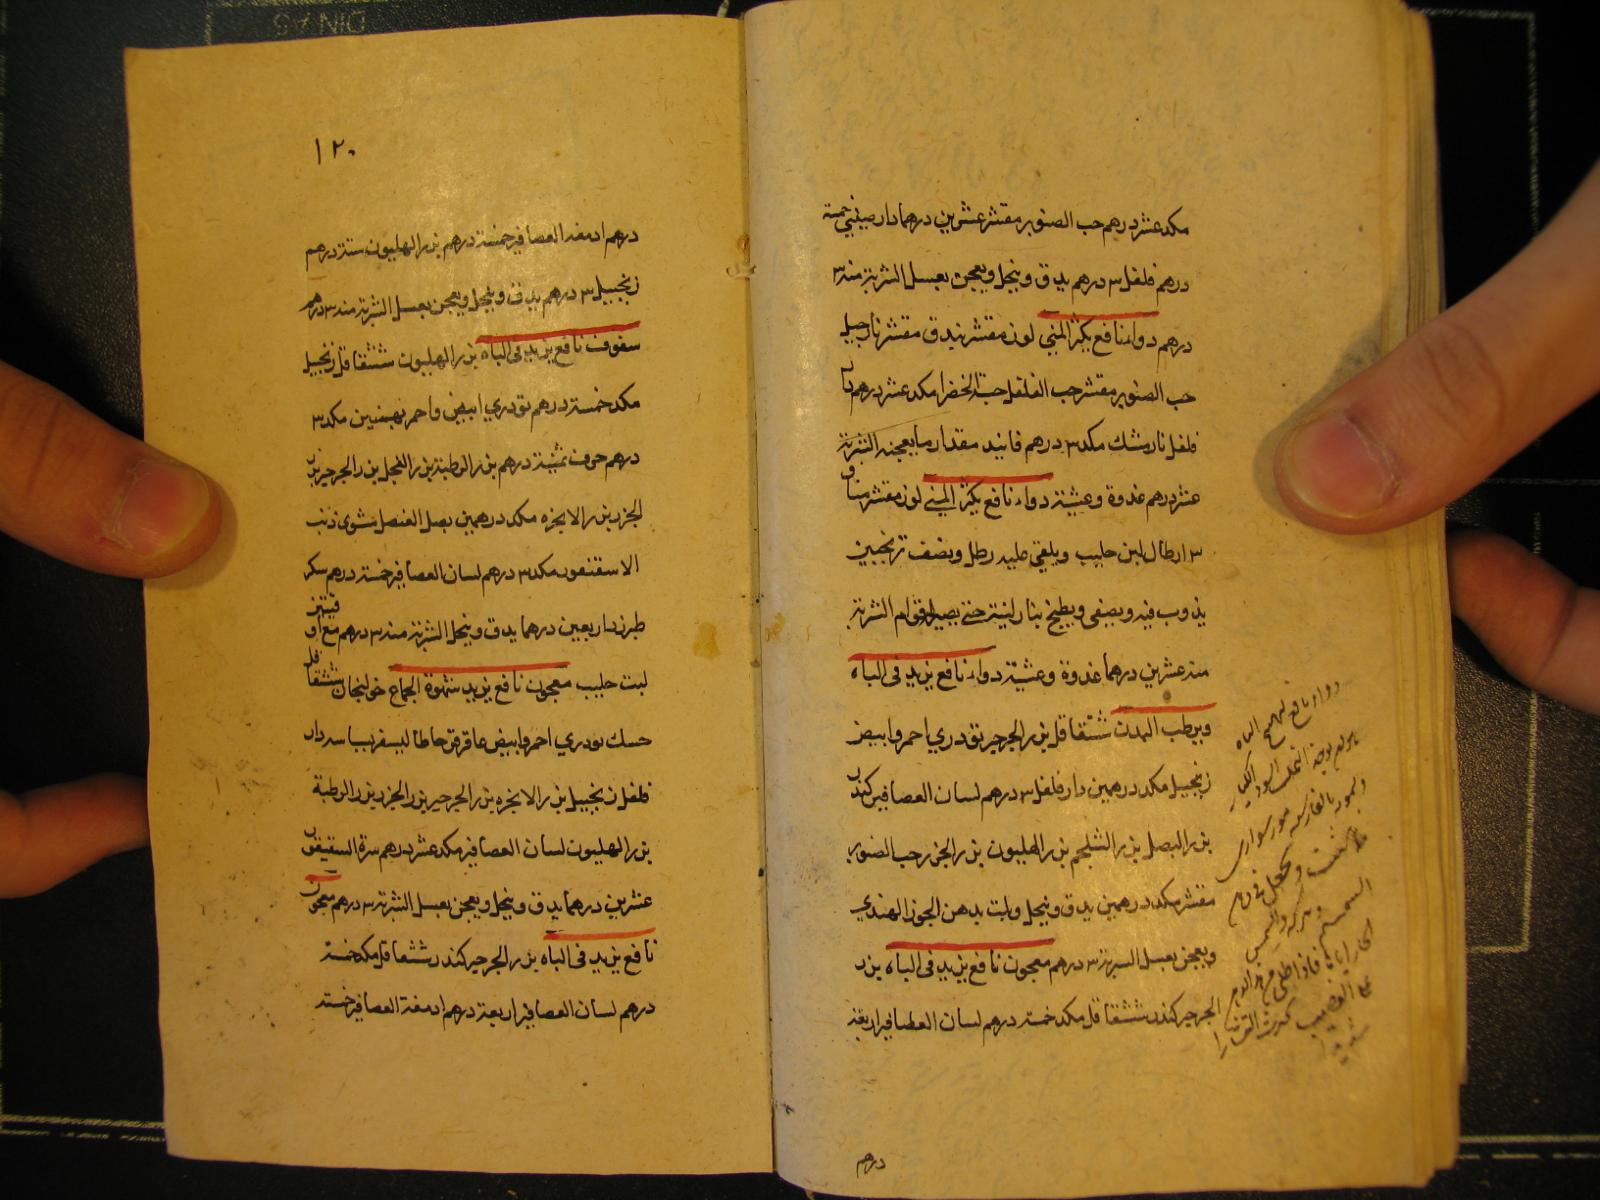 مكد عشر درهم حب الصنوبر مقشر عشرين درهما دارصيني خمسة
درهم فلفل ٣ درهم يدق وينخل ويعجن بعسل الشربة منه ٣
درهم دواء نافع يكثر المني لوز مقشر بندق مقشر نارجيل
حب الصنوبر مقشر حب الفلفل حبة الخضرا مكد عشر درهم دار
فلفل نارمشك مكد ٣ درهم فانيد مقدار ما يعجنه الشربة
عشر درهم غدوة وعشية دواء نافع يكثر المني لوز مقشر
٣ ارطال لبن حليب ويلقي عليه رطل ونصف ترنجبين
يذوب فيه ويصفى ويطبخ بنار لينة حتى يصير له قوام الشربة
منه عشرين درهما غدوة وعشية دواء نافع يزيد في الباه
ويرطب البدن ششقاقل بزر الجرجير تودري احمر وابيض
زنجبيل مكد درهمين دارفلفل ٣ درهم لسان العصافير كندر
بزر البصل بزر الشلجم بزر الهليون بزر الجزر حب الصنوبر
مقشر مكد درهمين يدق وينخل ولت بدهن الجوز الهندي
ويعجن بعسل الشربة ٣ درهم معجون نافع يزيد في الباه بزر
الجرجير كندر ششقاقل مكد خمسة درهم لسان العصافير اربعة
درهم
دواء نافع لتهييج الباه
١٢٠
درهم ادمغة العصافير خمسة درهم بزر الهليون ستة درهم
زنجبيل ٣ درهم يدق وينخل ويعجن بعسل الشربة منه ٣ درهم
سفوف نافع يزيد في الباه بزر الهليون ششقاقل زنجبيل
مكد خمسة درهم تودري ابيض واحمر بهمنين مكد ٣
درهم حرف ثمنية درهم بزر الرطبة بزر الفجل بزر الجرجير بزر
الجزر بزر الانجره مكد درهمين بصل العنصل مشوي ذنب
الاسقنقور مكد ٣ درهم لسان العصافير خمسة درهم سكر
طبرزد اربعين درهما يدق وينخل الشربة منه ٣ درهم مع اوقيتين
لبن حليب معجون نافع يزيد شهوة الجماع خولنجان ششقاقل
حسك تودري احمر وابيض عاقرقرحا بسفربسا سه دار
فلفل زنجبيل بزر الانجره بزر الجرجير بزر الجزر بزر الرطبة
بزر الهليون لسان العصافير مكد عشر درهم سرة السقنقور
عشرين درهما يدق وينخل ويعجن بعسل الشربة ٣ درهم معجون
نافع يزيد في الباه بزر الجرجير كندر ششقاقل مكد خمسة
درهم لسان العصافير اربعة درهم ادمغة العصافير خمسة